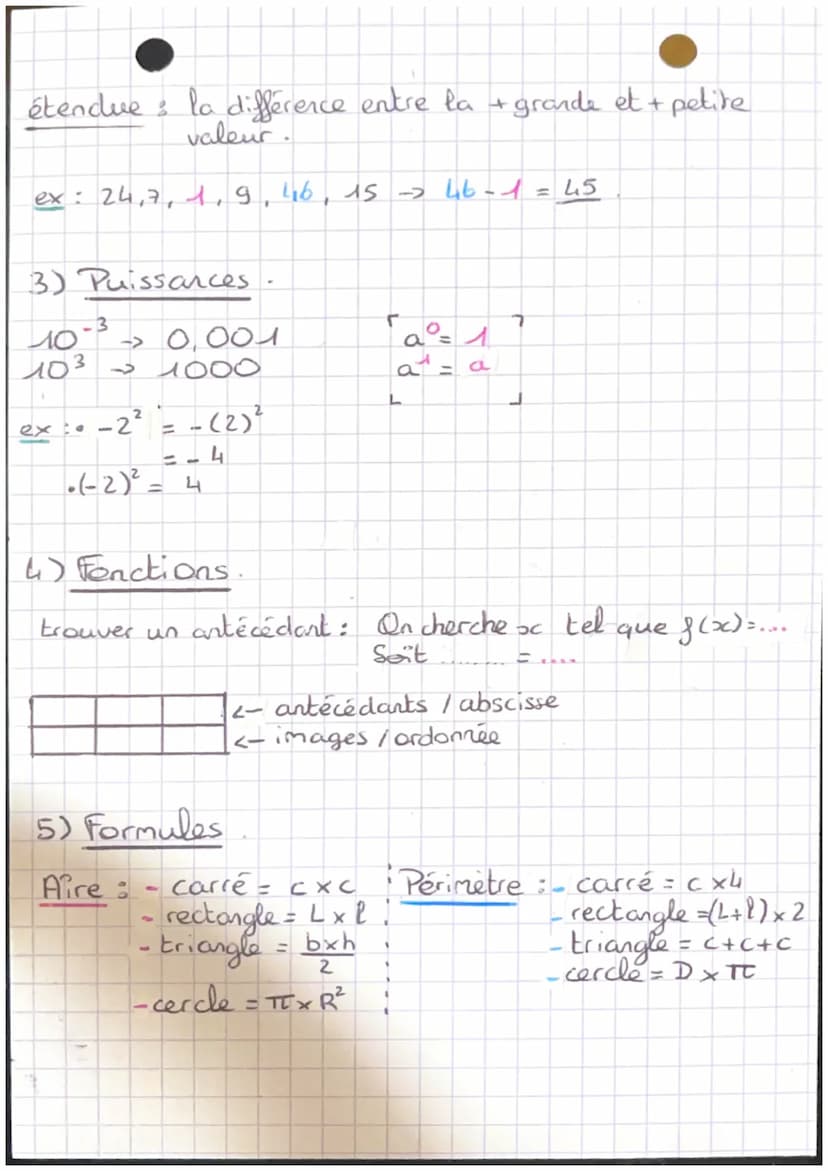 étendue : la différence entre la + grande et + petite
valeur.
ex : 24, 7, 1, 9, 46, 15 -> 46 - 1 = 45.
3) Puissances.
10⁻³ -> 0,001
10³ -> 1000
a⁰ = 1
a¹ = a
ex : • -2² = -(2)²
= -4
•(-2)² = 4
4) Fonctions.
trouver un antécédant : On cherche x tel que f(x)=....
Soit ........ = ....
<- antécédants / abscisse
<- images / ordonnée
5) Formules.
Aire : - carré = c x c
- rectangle = L x l
- triangle = b x h / 2
- cercle = π x R²
Périmètre : - carré = c x 4
- rectangle = (L+l) x 2
- triangle = c + c + c
- cercle = D x π